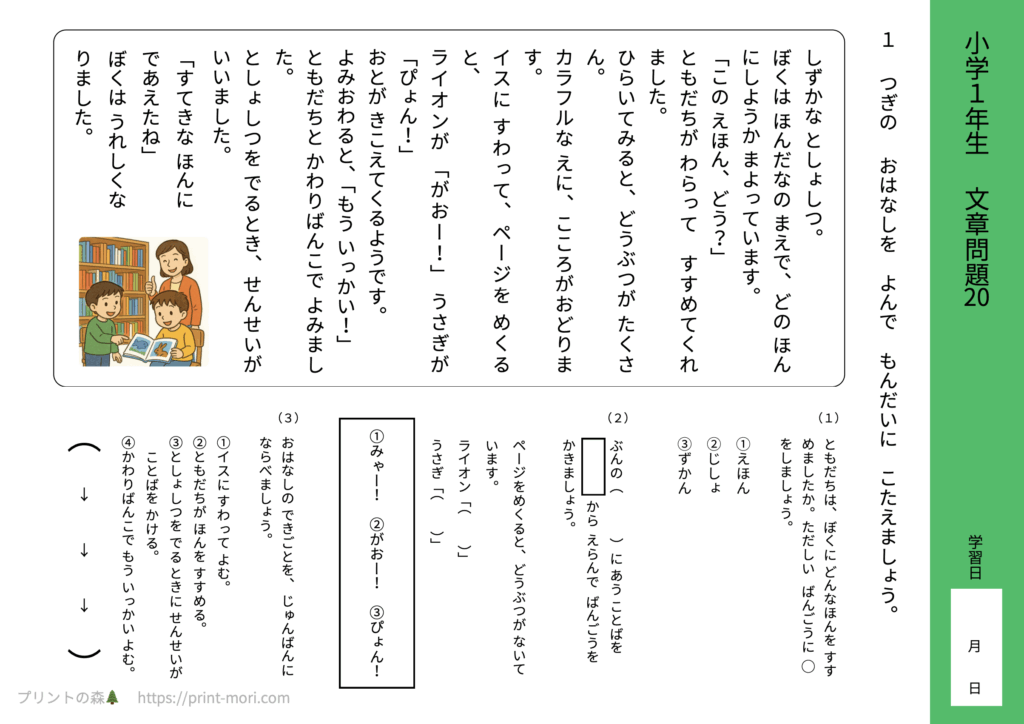 小学１年生　文章問題20
学習日
月
日
１　つぎの　おはなしを　よんで　もんだいに　こたえましょう。
しずかな としょしつ。
ぼくは ほんだなの まえで、どの ほん
にしようか まよっています。
「この えほん、どう？」
ともだちが わらって　すすめてくれ
ました。
ひらいてみると、どうぶつが たくさ
ん。
カラフルな えに、こころがおどりま
す。
イスに すわって、ページを めくる
と、
ライオンが 「がおー！」 うさぎが
「ぴょん！」
おとが きこえてくるようです。
よみおわると、「もう いっかい！」
ともだちと かわりばんこで よみまし
た。
としょしつを でるとき、せんせいが
いいました。
「すてきな ほんに
であえたね」
ぼくは うれしくな
りました。
（１）
ともだちは、ぼくに どんなほんを すす
めましたか。ただしい ばんごうに ○
をしましょう。
①えほん
②じしょ
③ずかん
（２）
ぶんの（　　）に あう ことばを
から えらんで ばんごうを
かきましょう。
ページをめくると、どうぶつがないて
います。
ライオン「（　　）」
うさぎ「（　　）」
①みゃー！　②がおー！　③ぴょん！
（３）
おはなしの できごとを、じゅんばんに
ならべましょう。
①イスに すわって よむ。
②ともだちが ほんを すすめる。
③としょしつを でる ときに せんせいが
ことばを かける。
④かわりばんこで もう いっかい よむ。
（　→　→　→　）
プリントの森 https://print-mori.com